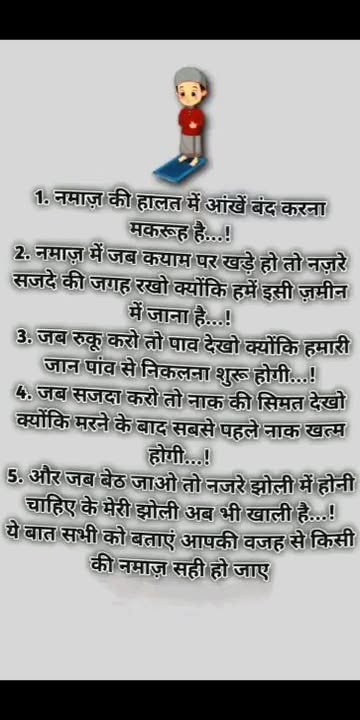 1. नमाज़ की हालत में आंखें बंद करना
मकरूह है...!
2. नमाज़ में जब कयाम पर खड़े हो तो नज़रे
सजदे की जगह रखो क्योंकि हमें इसी ज़मीन
में जाना है...!
3. जब रुकू करो तो पाव देखो क्योंकि हमारी
जान पांव से निकलना शुरू होगी...!
4. जब सजदा करो तो नाक की सिमत देखो
क्योंकि मरने के बाद सबसे पहले नाक खत्म
होगी...!
5. और जब बेठ जाओ तो नजरे झोली में होनी
चाहिए के मेरी झोली अब भी खाली है...!
ये बात सभी को बताएं आपकी वजह से किसी
की नमाज़ सही हो जाए